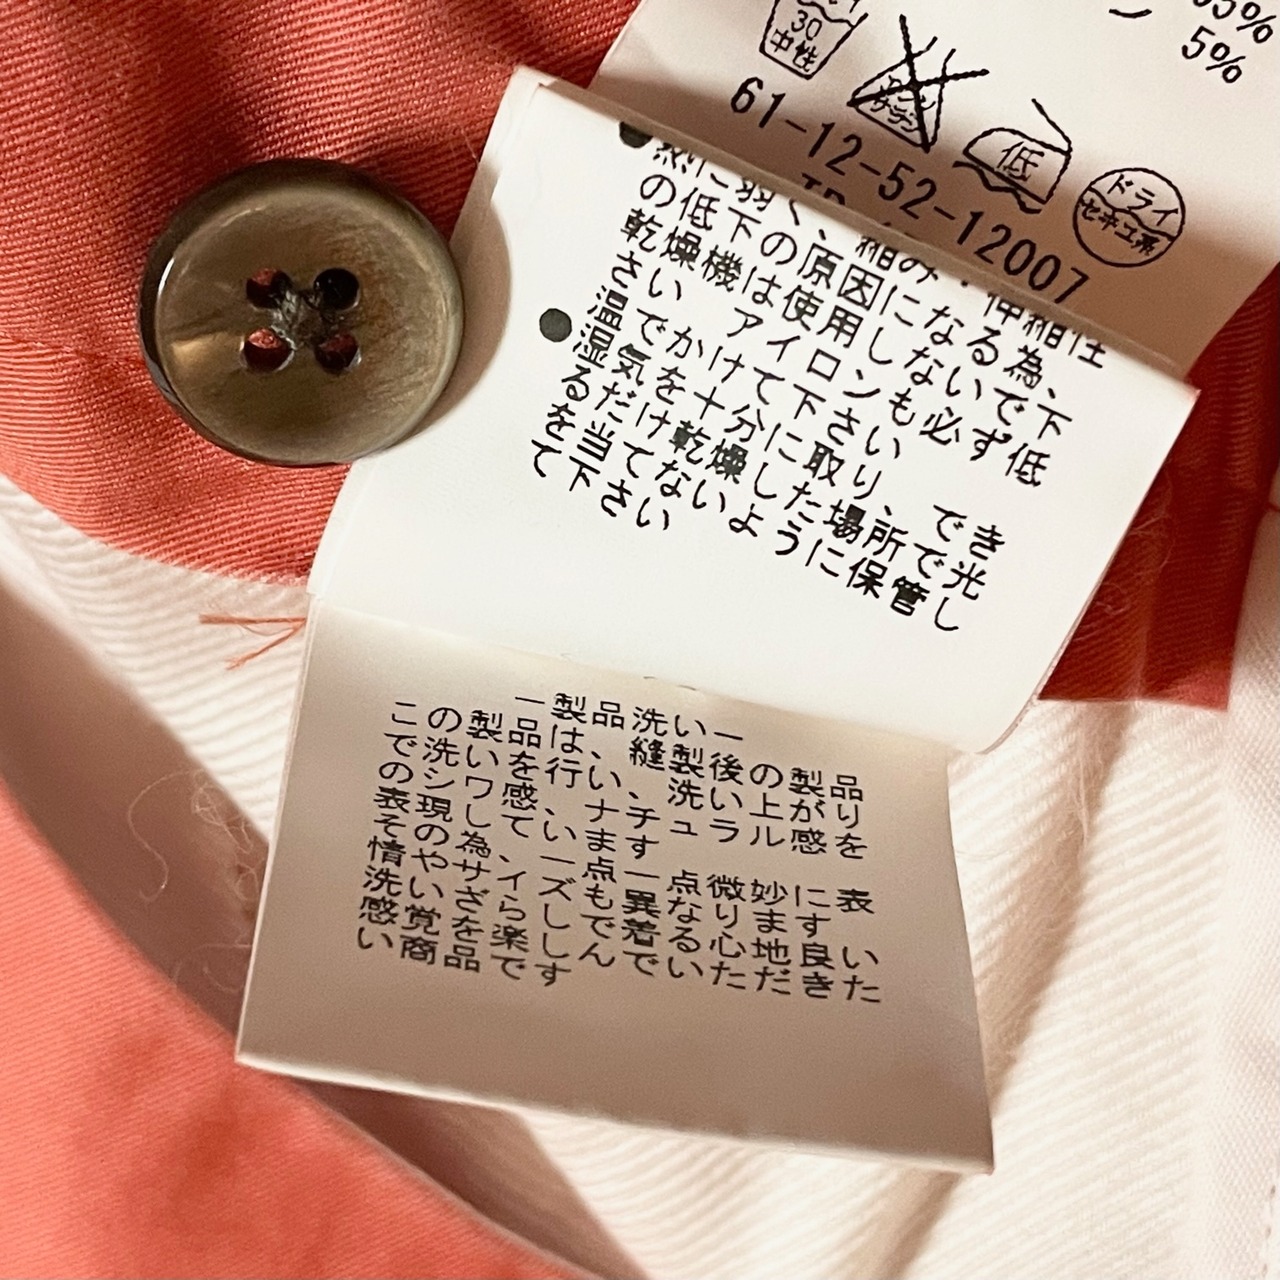 5%
30
中性
低
ドライ
セキユ系
61-12-52-12007
熱に弱く、縮み・伸縮性
の低下の原因になる為、
乾燥機は使用しないで下
さい アイロンも必ず低
温でかけて下さい
●湿気を十分に取り、でき
るだけ乾燥した場所で光
を当てないように保管し
て下さい
ー製品洗いー
この製品は、縫製後の製品
で洗いを行い、洗い上がり
のシワ感、ナチュラル感を
表現しています
その為、一点一点微妙に表
情やサイズも異なります
洗いざらしの着心地良い
感覚を楽しんでいただきた
い商品です